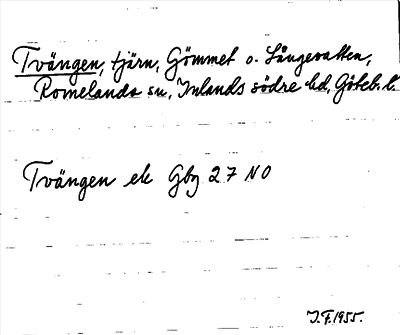 Tvängen, tjärn, Gömmet o. Långevatten,
Romelanda sn, Inlands södre hd, Göteb. l.
Tvängen ek Gbg 27 NO
I.F. 1955.